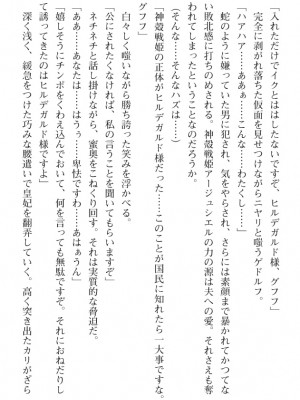 「入れただけでイクとははしたないですぞ、ヒルデガルド様、グフフ」
完全に剥がれ落ちた仮面を見せつけながらニヤリと嗤うゲドルフ。
「ハアハア……ああぁ……こんな……わたくし……」
蛇のように嫌っていた男に犯され、気をやらされ、さらには素顔まで暴かれてかつてな
い敗北感に打ちのめされる。神殻戦姫アージュシエルの力の源は夫への愛。それさえも奪
われてしまったということなのだろうか。
（そんな……そんなハズは……）
「神殻戦姫の正体がヒルデガルド様だった……このことが国民に知れたら一大事ですな。
グフフ」
白々しく嗤いながら勝ち誇った笑みを浮かべる。
「公にされたくなければ、私の言うことを聞いてもらいますぞ」
ネチネチと話し掛けながら、蜜奥をこねくり回す。それは実質的な脅迫だ。
「ああ……あなたは……はうぅ……卑怯ですわ……あはぁうん」
「嬉しそうにチンポをくわえ込んでおいて、何を言っても無駄ですぞ。それにおねだりし
て誘ってきたのはヒルデガルド様ですぞ」
深く浅く、緩急をつけた巧みな腰遣いで皇妃を翻弄していく。高く突き出たカリがざら